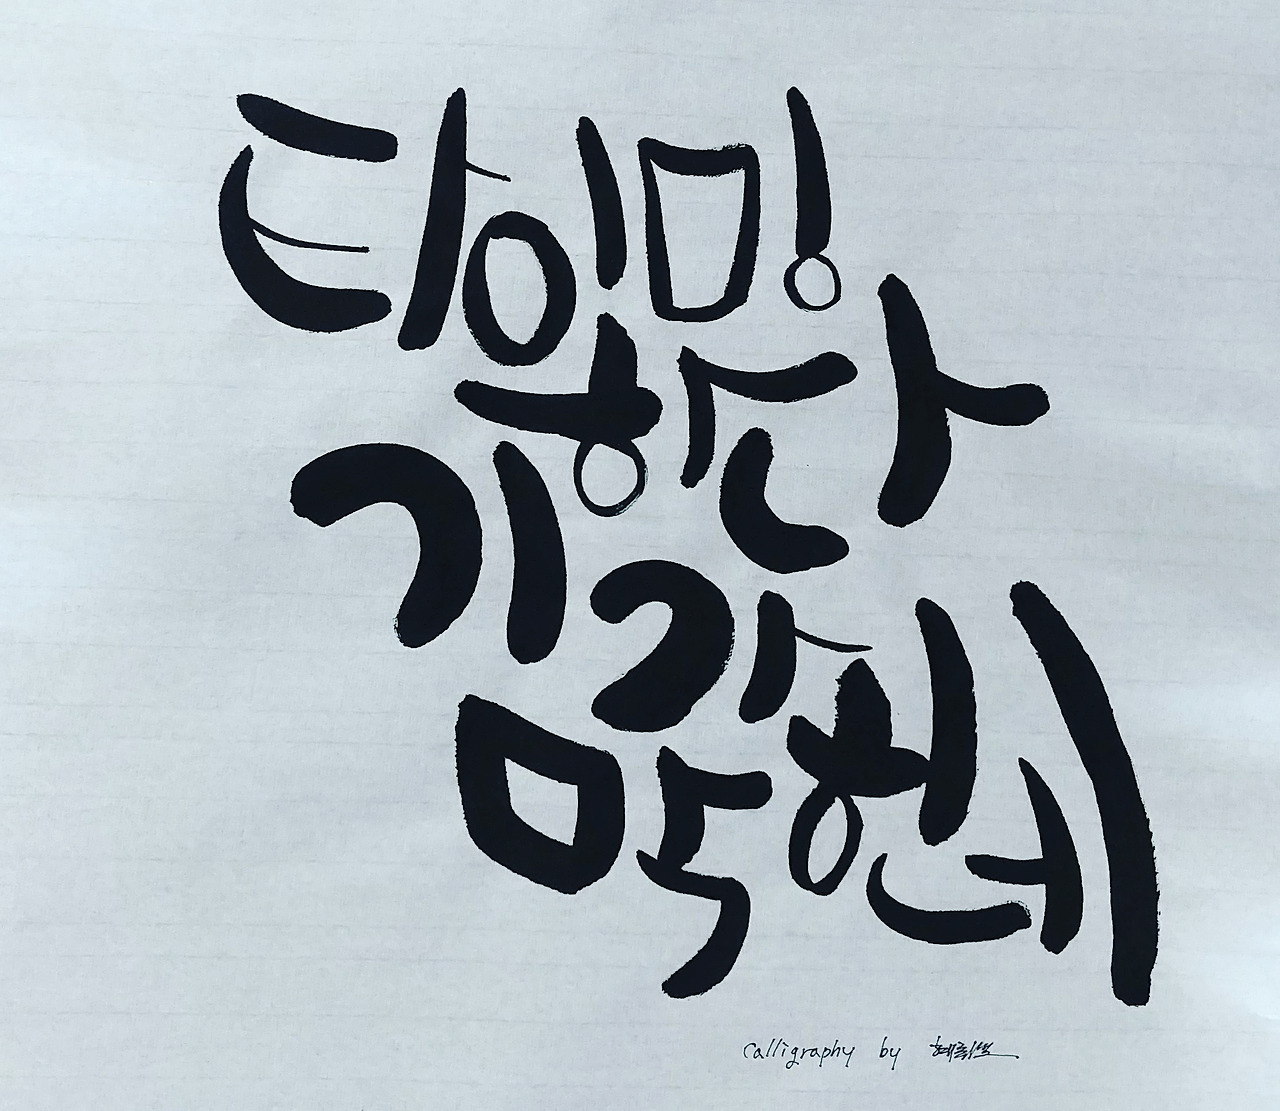 타이밍
하나
기가
막히네
Calligraphy by